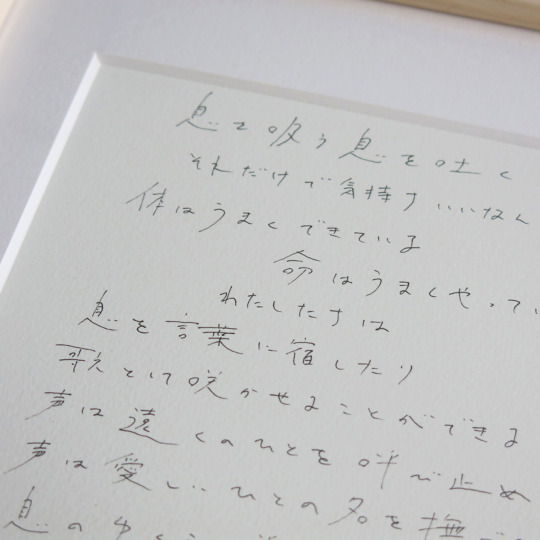 息を吸う息を吐く
それだけで気持ちいいなん
体はうまくできている
命はうまくやってい
わたしたちは
息を言葉に宿したり
歌として咲かせることができる
声は遠くのひとを呼び止め
声は愛しいひとの名を撫で
息のゆく